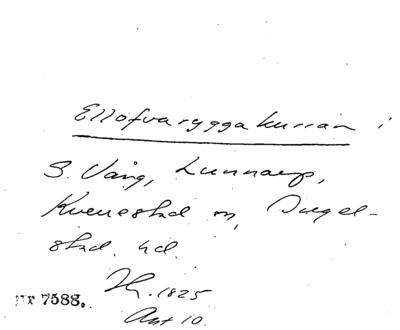 Ellofvaryggakurran i
S. Vång, Lunnarp,
Kverrestad m, Ingel-
stad. hd.
Th. 1825
Ant 10.
7588.